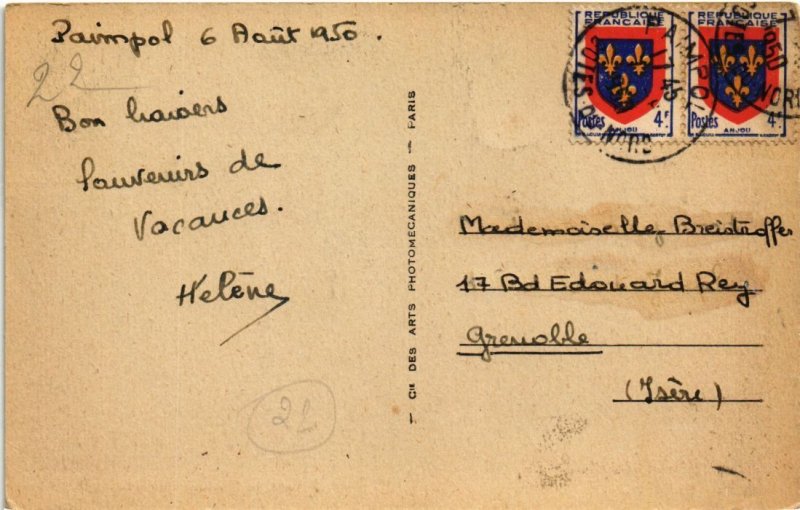 Paimpol 6 Août 1950.
22
Bon baisers
Souvenirs de
Vacances.
Hélène
21
— Cie DES ARTS PHOTOMÉCANIQUES — PARIS
RÉPUBLIQUE FRANÇAISE
Postes 4F
ANJOU
RÉPUBLIQUE FRANÇAISE
Postes 4F
ANJOU
PAIMPOL
17 45
COTES-DU-NORD
1950
NORD
Mademoiselle Breistroffer
17 Bd Edouard Rey
Grenoble
(Isère)